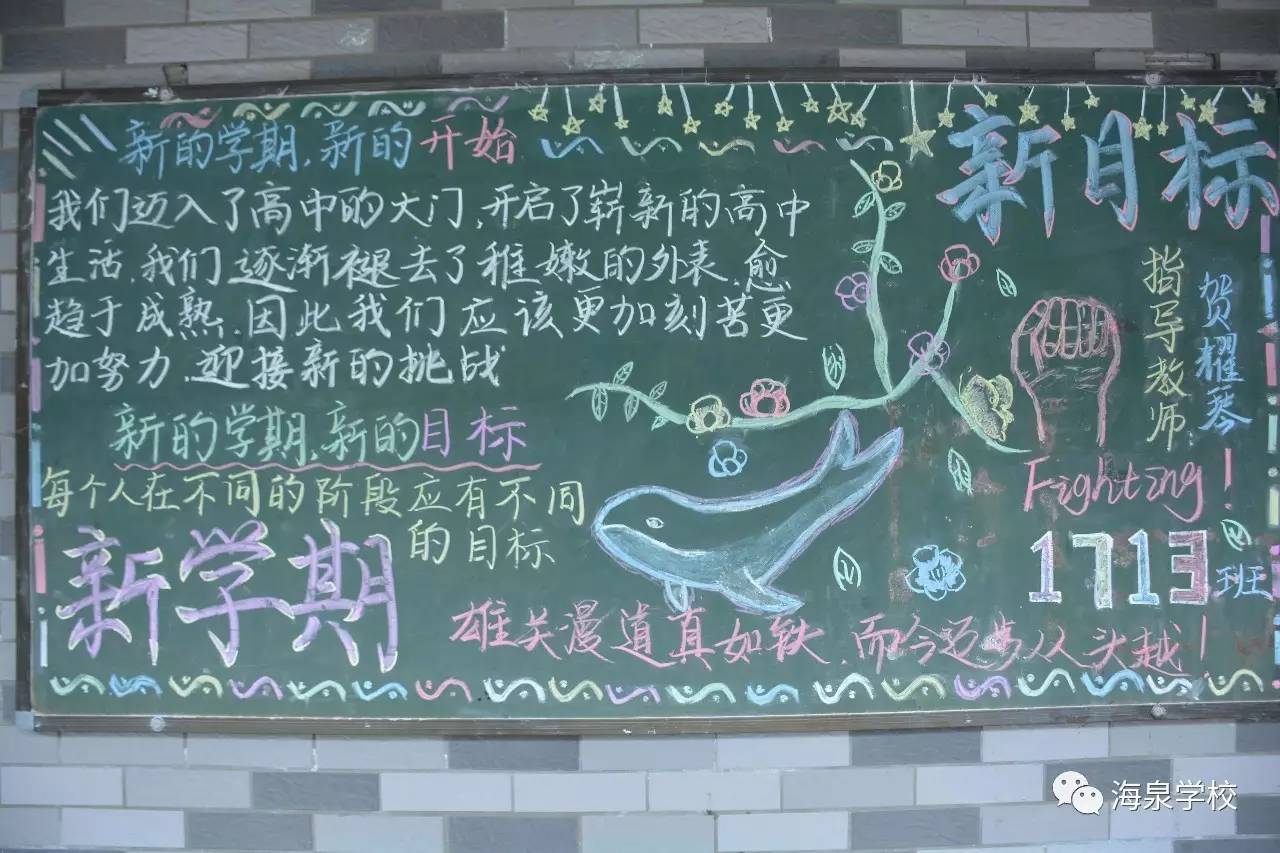 新的学期,新的开始
我们迈入了高中的大门,开启了崭新的高中
生活,我们逐渐褪去了稚嫩的外表,愈
趋于成熟.因此我们应该更加刻苦更
加努力.迎接新的挑战
新的学期,新的目标
每个人在不同的阶段应有不同
的目标
新学期
新目标
指导教师
贺耀琴
Fighting!
1713班
雄关漫道真如铁.而今迈步从头越!
海泉学校